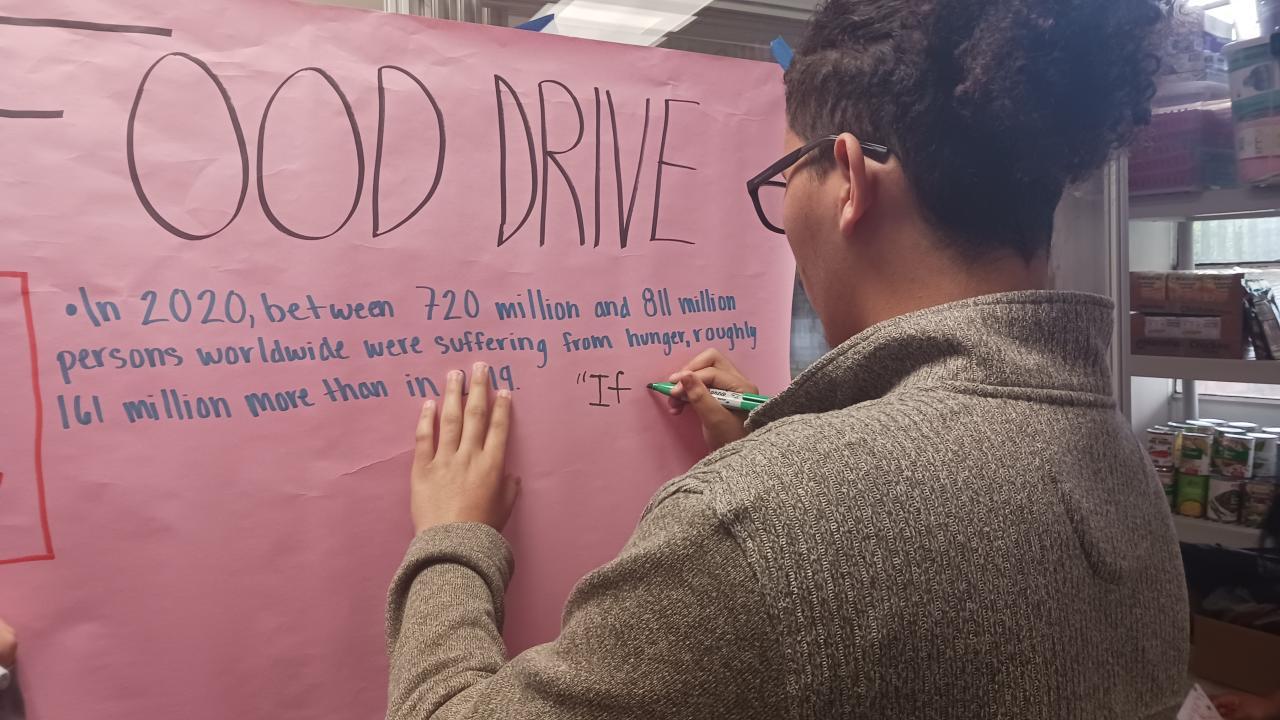 FOOD DRIVE
•In 2020, between 720 million and 811 million
persons worldwide were suffering from hunger, roughly
161 million more than in 19.
"If